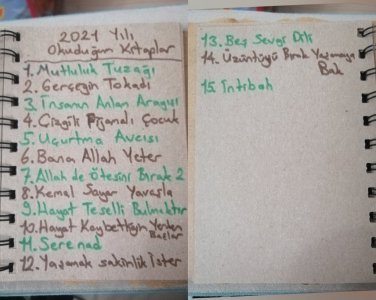 2021 Yılı
Okuduğum Kitaplar
1. Mutluluk Tuzağı
2. Gerçeğin Tokadı
3. İnsanın Anlam Arayışı
4. Çizgili Pijamalı Çocuk
5. Uçurtma Avcısı
6. Bana Allah Yeter
7. Allah de Ötesini Bırak 2
8. Kemal Sayar Yavaşla
9. Hayat Teselli Bulmaktır
10. Hayat Kaybettiğin Yerden
Başlar
11. Serenad
12. Yaşamak sakinlik İster
13. Beş Sevgi Dili
14. Üzüntüyü Bırak Yaşamaya
Bak
15. İntibah